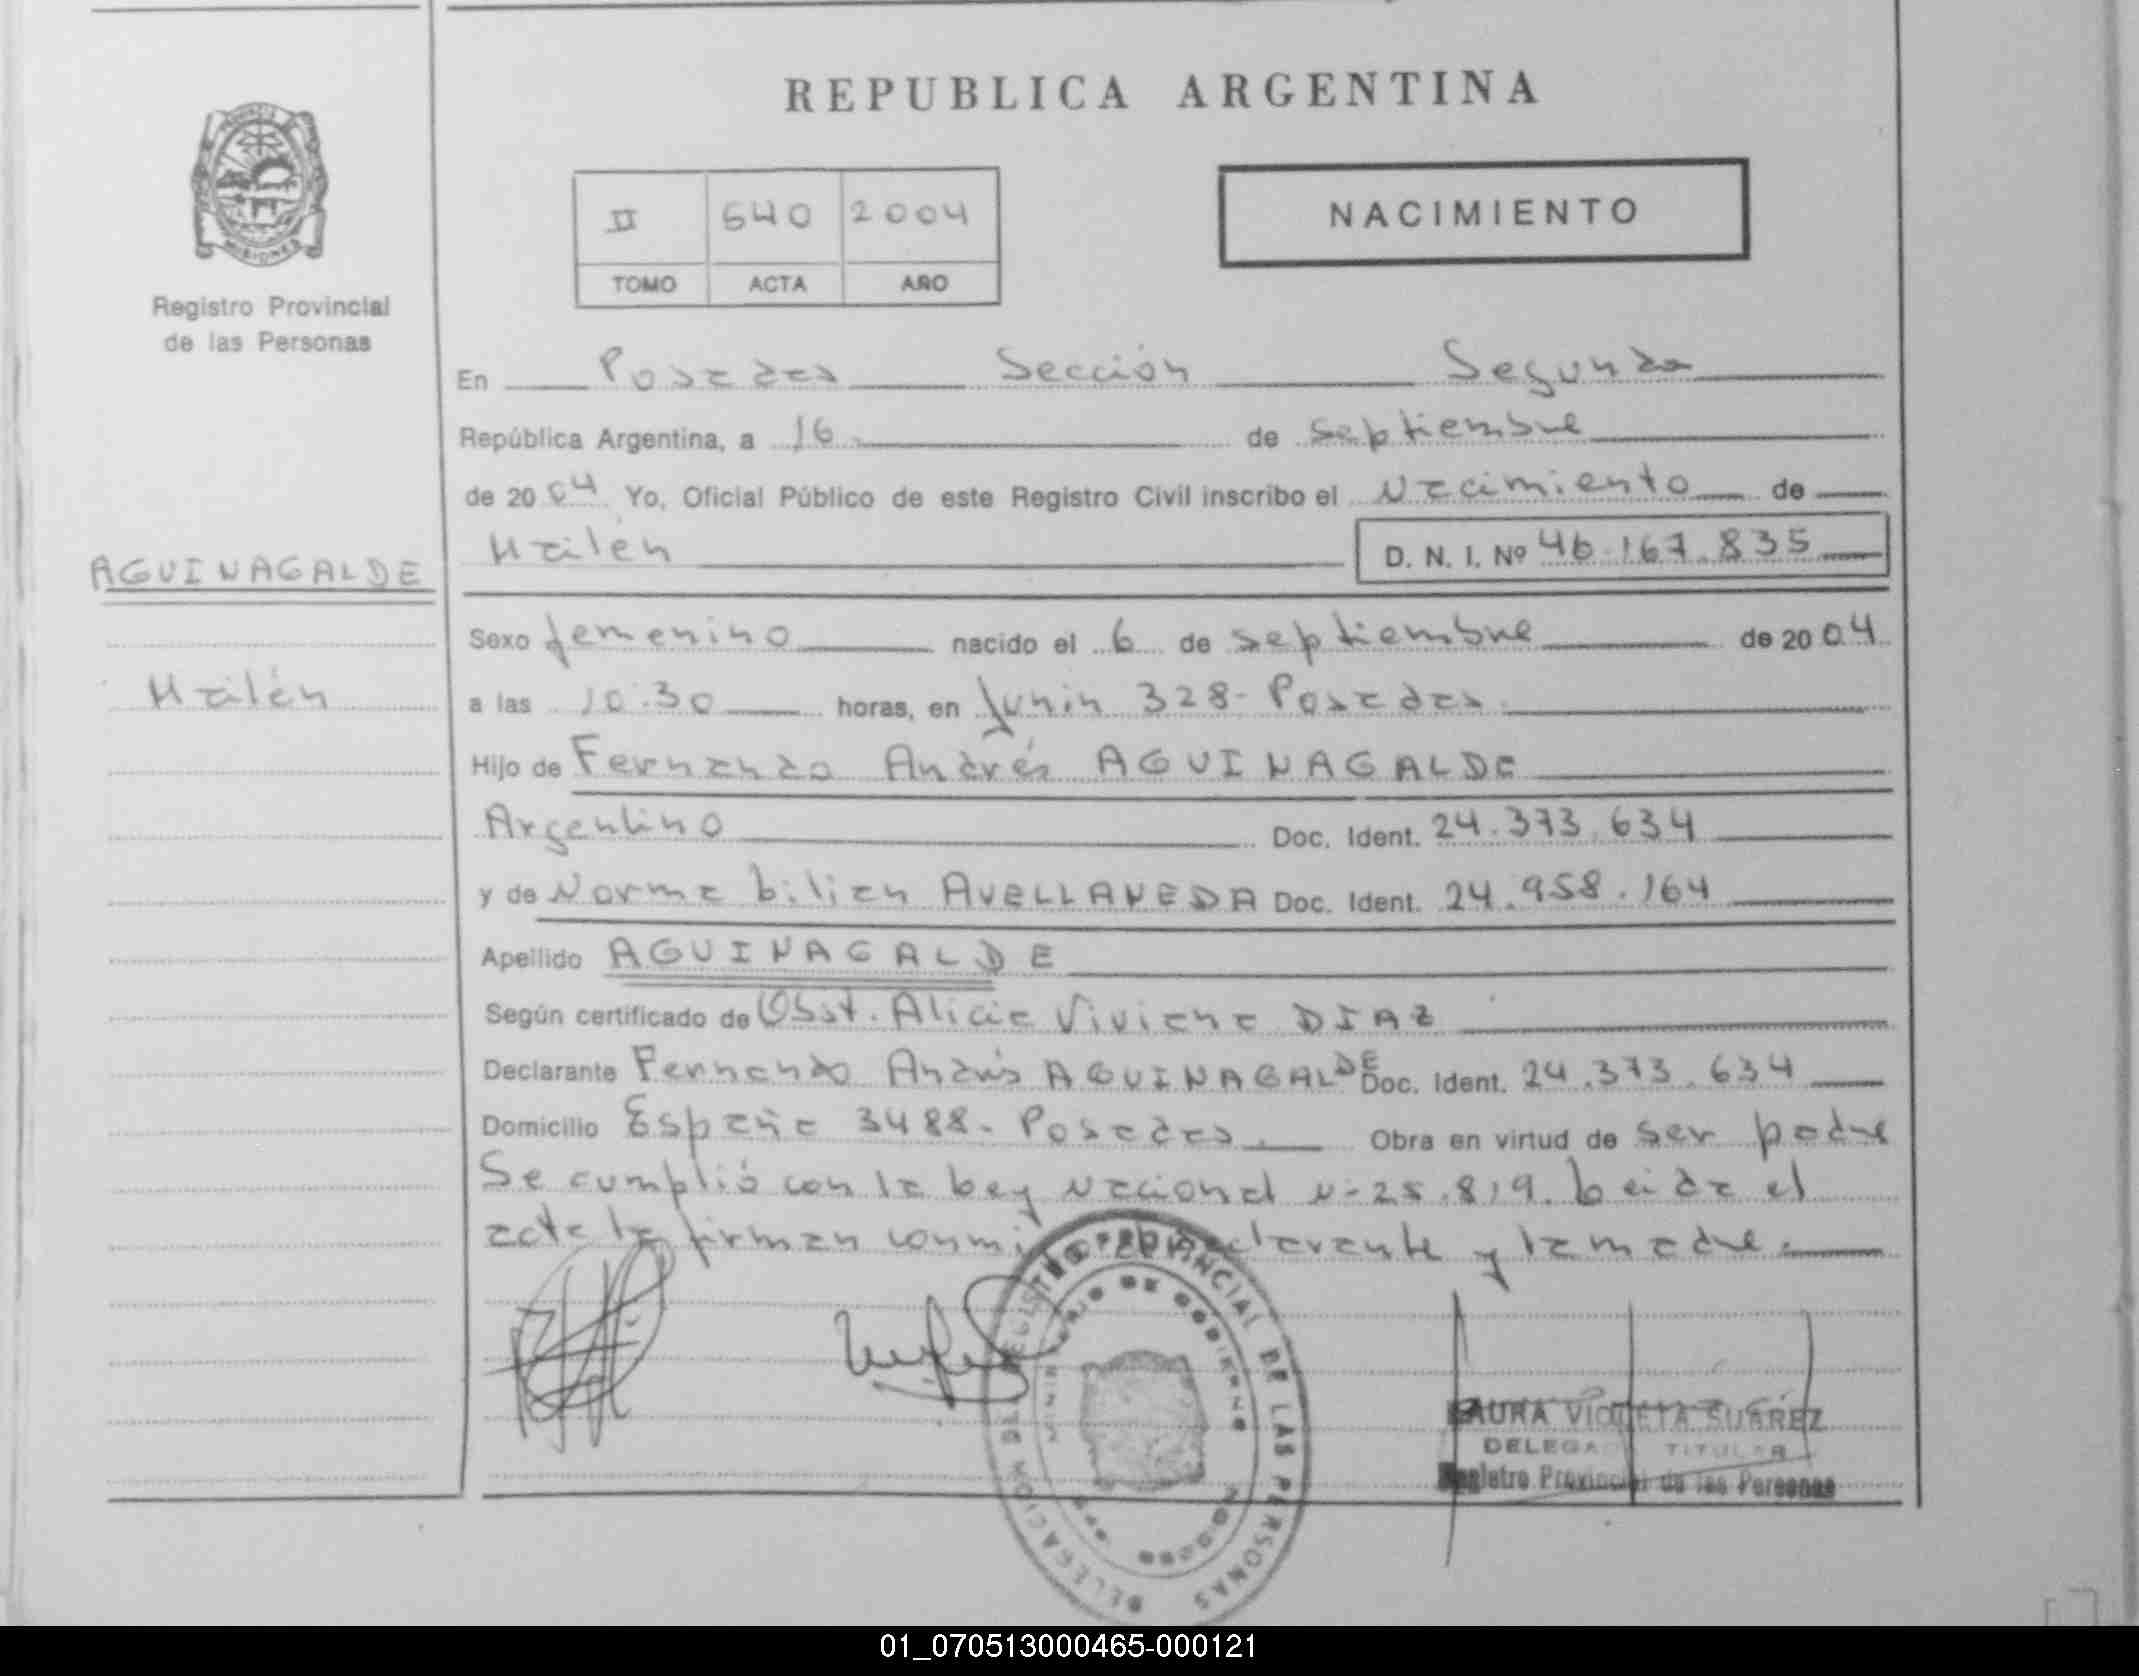 REPUBLICA ARGENTINA
II 540 2004
TOMO ACTA AÑO
NACIMIENTO
PROVINCIA DE
MISIONES
Registro Provincial
de las Personas
AGUINAGALDE
Mailén
En Posadas Sección Segunda
República Argentina, a 16 de septiembre
de 2004 Yo, Oficial Público de este Registro Civil inscribo el Nacimiento de
Mailén D. N. I. Nº 46.167.835
Sexo femenino nacido el 6 de septiembre de 2004
a las 10:30 horas, en Junin 328- Posadas.
Hijo de Fernando Andrés AGUINAGALDE
Argentino Doc. Ident. 24.373.634
y de Norma Lilian AVELLANEDA Doc. Ident. 24.958.164
Apellido AGUINAGALDE
Según certificado de Obst. Alicia Viviana DIAZ
Declarante Fernando Andrés AGUINAGALDE Doc. Ident. 24.373.634
Domicilio España 3488- Posadas. Obra en virtud de ser padre
Se cumplió con la Ley Nacional N-25.819. Leida el
acta la firman conmigo el declarante y la madre.
REGISTRO PROVINCIAL DE LAS PERSONAS
MINISTERIO DE GOBIERNO
DELEGACION
LAURA VIOLETA SUAREZ
DELEGADA TITULAR
Registro Provincial de las Personas
01_070513000465-000121